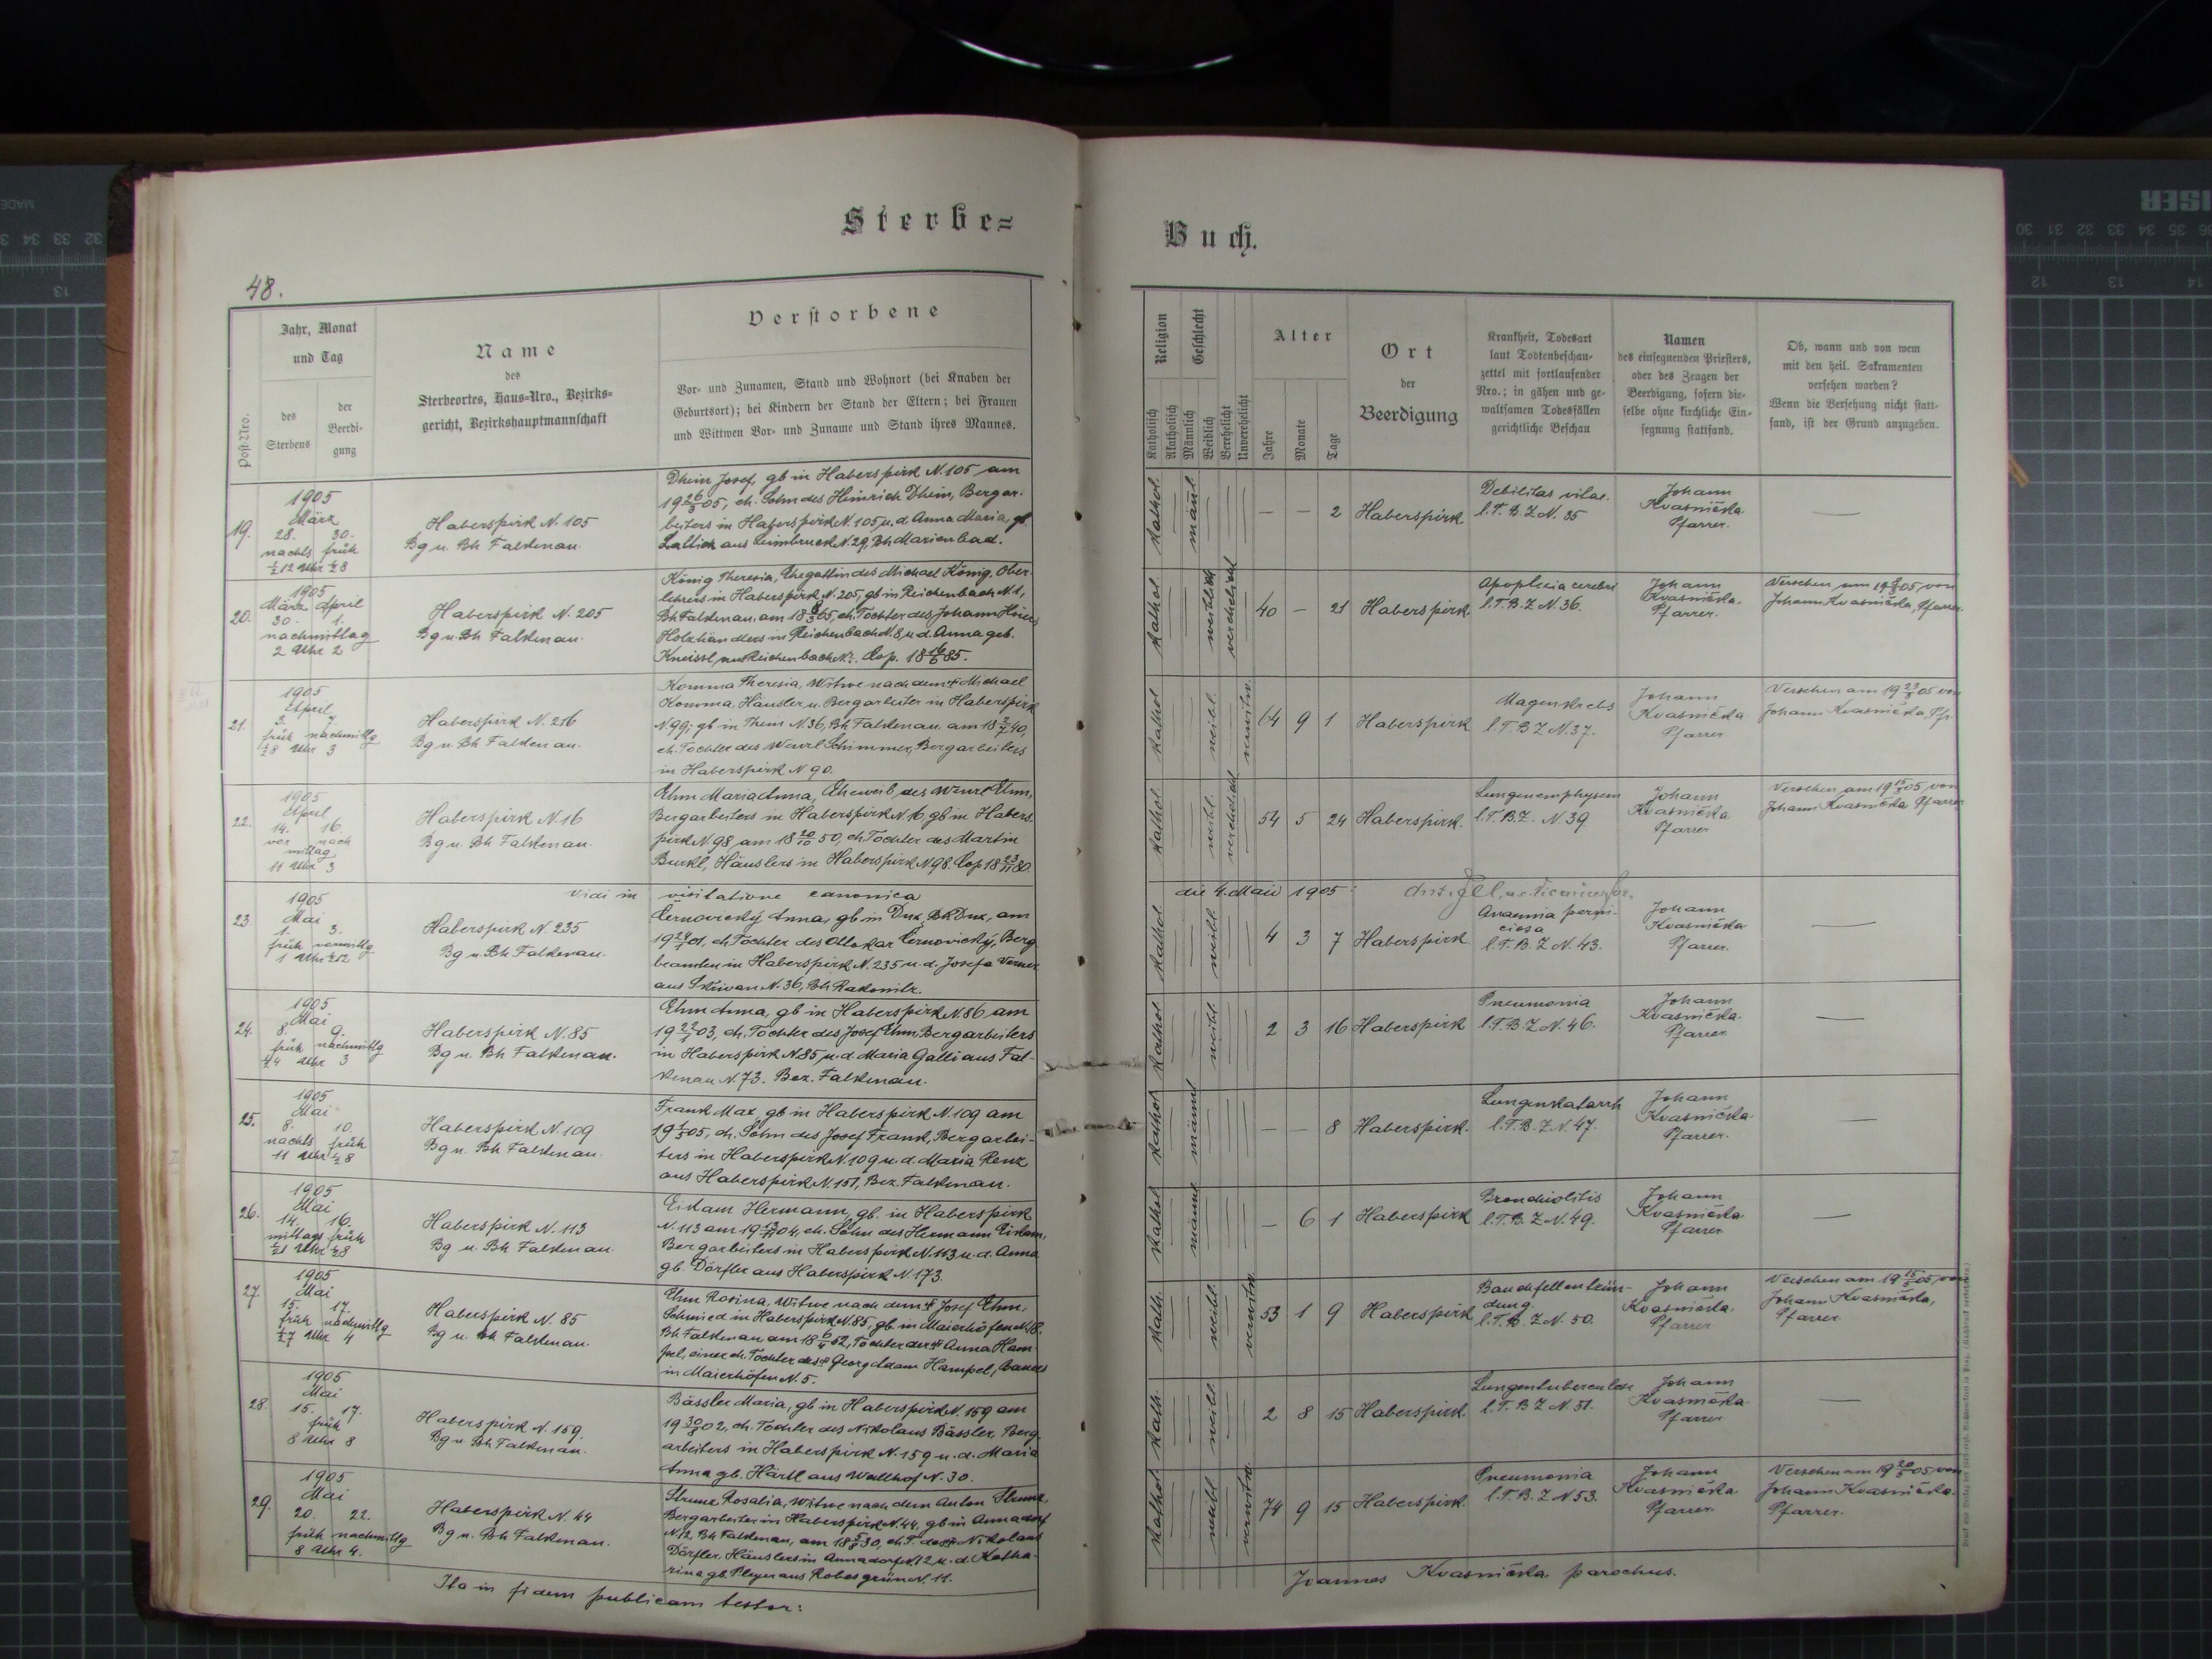 Sterbe=
Buch.
48.
Post-Nro.
Jahr, Monat
und Tag
des
Sterbens
der
Beerdi-
gung
Name
des
Sterbeortes, Haus-Nro., Bezirks-
gericht, Bezirkshauptmannschaft
Verstorbene
Vor- und Zunamen, Stand und Wohnort (bei Knaben der
Geburtsort); bei Kindern der Stand der Eltern; bei Frauen
und Wittwen Vor- und Zuname und Stand ihres Mannes.
Religion
Katholisch
Akatholisch
Geschlecht
Männlich
Weiblich
Verehelicht
Unverehelicht
Alter
Jahre
Monate
Tage
Ort
der
Beerdigung
Krankheit, Todesart
laut Todtenbeschau-
zettel mit fortlaufender
Nro.; in gähen und ge-
waltsamen Todesfällen
gerichtliche Beschau
Namen
des einsegnenden Priesters,
oder des Zeugen der
Beerdigung, sofern die-
selbe ohne kirchliche Ein-
segnung stattfand.
Ob, wann und von wem
mit den heil. Sakramenten
versehen worden?
Wenn die Versehung nicht statt-
fand, ist der Grund anzugeben.
19.
1905
März
28. 30.
nachts früh
½12 Uhr ½8
Haberspirk N. 105
Bg u. Bh Falkenau.
Dhein Josef, gb in Haberspirk N. 105 am
19 26/3 05, eh. Sohn des Heinrich Dhein, Bergar-
beiters in Haberspirk N. 105 u. d. Anna Maria, gb.
Lattick aus Leimbruck N. 29, Bh Marienbad.
kathol. männl. — — 2 Haberspirk
Debilitas vitae.
l. T. B. Z N. 35
Johann
Kvasnička
Pfarrer.
—
20.
1905
März April
30. 1.
nachmittag
2 Uhr 2
Haberspirk N. 205
Bg u. Bh Falkenau.
König Theresia, Ehegattin des Michael König, Ober-
lehrers in Haberspirk N. 205, gb in Reichenbach N. 1,
Bh Falkenau, am 18 9/3 65, eh. Tochter des Johann
Holzhändlers in Reichenbach N. 8, u d. Anna geb.
Kneissl, aus Reichenbach N. ?. Cop. 18 16/6 85.
kathol. weiblich verehelicht 40 — 21 Haberspirk
Apoplexia cerebri
l. T. B. Z N. 36.
Johann
Kvasnička.
Pfarrer.
Versehen am 05 von
Johann Kvasnička, Pfarrer
21.
1905
April
3. 7.
früh nachmittg
½8 Uhr 3
Haberspirk N. 216
Bg u. Bh Falkenau.
Komma Theresia, Witwe nach dem † Michael
Komma, Häusler u. Bergarbeiter in Haberspirk
N 99; gb in Thein N. 36, Bh Falkenau, am 18 2/7 40,
eh. Tochter des Wenzl Schimmer, Bergarbeiters
in Haberspirk N 90.
kathol. weibl. verwitw. 64 9 1 Haberspirk
Magenkrebs
l. T. B Z N. 37.
Johann
Kvasnička
Pfarrer
Versehen am 19 23/3 05 von
Johann Kvasnička, Pf.
22.
1905
April
14. 16.
vor nach
mittag
11 Uhr 3
Haberspirk N. 16
Bg u. Bh Falkenau.
Ehm Maria Anna, Eheweib des Wenzl Ehm,
Bergarbeiters in Haberspirk N. 16, gb in Habers-
pirk N. 98 am 18 20/10 50, eh Tochter des Martin
Burkl, Häuslers in Haberspirk N 98. Cop 18 23/11 80.
kathol. weibl. verehelicht 54 5 24 Haberspirk.
Lungenemphysem
l. T. B. Z. N 39
Johann
Kvasnička
Pfarrer
Versehen am 19 05 von
Johann Kvasnička Pfarrer
vidi in visitatione canonica die 4. Maii 1905:
23
1905
Mai
1. 3.
früh vormittg
1 Uhr ½12
Haberspirk N. 235
Bg u. Bh Falkenau.
Černovický Anna, gb in Dux, Bh Dux, am
19 24/1 01, eh. Tochter des Ottokar Černovický, Berg-
beamten in Haberspirk N. 235 u. d. Josefa Verner
aus Skřivan N. 36, Bh Rakonitz.
kathol. weibl. 4 3 7 Haberspirk
Anaemia perni-
ciosa
l. T. B. Z N. 43.
Johann
Kvasnička
Pfarrer.
—
24.
1905
Mai
8. 9.
früh nachmittg
¼4 Uhr 3
Haberspirk N. 85
Bg u. Bh Falkenau.
Ehm Anna, gb in Haberspirk N. 86 am
19 22/1 03, eh. Tochter des Josef Ehm, Bergarbeiters
in Haberspirk N. 85 u. d. Maria Galli aus Fal-
kenau N. 73. Bez. Falkenau.
kathol. weibl. 2 3 16 Haberspirk
Pneumonia
l. T. B. Z N. 46.
Johann
Kvasnička
Pfarrer
—
25.
1905
Mai
8. 10.
nachts früh
11 Uhr ½8
Haberspirk N 109
Bg u. Bh Falkenau.
Frank Max, gb in Haberspirk N. 109 am
19 1/5 05, eh. Sohn des Josef Frank, Bergarbei-
ters in Haberspirk N. 109 u. d. Maria Renz
aus Haberspirk N. 151, Bez. Falkenau.
kathol. männl — — 8 Haberspirk.
Lungenkatarrh
l. T. B. Z N. 47.
Johann
Kvasnička
Pfarrer.
—
26.
1905
Mai
14. 16.
mittags früh
½1 Uhr ½8
Haberspirk N. 113
Bg u. Bh Falkenau.
Eidam Hermann, gb. in Haberspirk
N. 113 am 19 13/11 04, eh. Sohn des Hermann Eidam,
Bergarbeiters in Haberspirk N. 113 u. d. Anna
gb. Dörfler aus Haberspirk N. 173.
kathol männl. — 6 1 Haberspirk
Bronchiolitis
l. T. B. Z N. 49.
Johann
Kvasnička
Pfarrer
—
27.
1905
Mai
15. 17.
früh nachmittg
½7 Uhr 4
Haberspirk N. 85
Bg u. Bh Falkenau.
Ehm Rosina, Witwe nach dem † Josef Ehm,
Schmied in Haberspirk N. 85, gb. in Maierhöfen N. 18.
Bh Falkenau am 18 6/4 52, Tochter der † Anna Ham-
pel, einer eh. Tochter des † Georg Adam Hampel, Bauers
in Maierhöfen N. 5.
kath. weibl. verwitw. 53 1 9 Haberspirk
Bauchfellentzün-
dung.
l. T. B. Z N. 50.
Johann
Kvasnička.
Pfarrer
Versehen am 19 15/5 05, von
Johann Kvasnička,
Pfarrer
28.
1905
Mai
15. 17.
früh
8 Uhr 8
Haberspirk N. 159.
Bg u. Bh Falkenau.
Bässler Maria, gb in Haberspirk N. 159 am
19 30/8 02, eh. Tochter des Nikolaus Bässler, Berg-
arbeiters in Haberspirk N. 159 u. d. Maria
Anna gb. Härtl aus Wallhof N. 30.
kath. weibl. 2 8 15 Haberspirk.
Lungentuberculose
l. T. B Z N. 51.
Johann
Kvasnička
Pfarrer
—
29.
1905
Mai
20. 22.
früh nachmittg
8 Uhr 4.
Haberspirk N. 44
Bg u. Bh Falkenau.
Strunz Rosalia, Witwe nach dem Anton Strunz,
Bergarbeiter in Haberspirk N. 44, gb in Annadorf
N. 12 Bh Falkenau, am 18 5/8 30, eh. T. des † Nikolaus
Dörfler, Häuslers in Annadorf N. 12 u. d. Katha-
rina gb. Pleyer aus Robesgrün N. 11.
kathol weibl verwitw. 74 9 15 Haberspirk.
Pneumonia
l. T. B. Z N 53.
Johann
Kvasnička
Pfarrer
Versehen am 19 20/5 05 von
Johann Kvasnička.
Pfarrer.
Ita in fidem publicam testor:
Joannes Kvasnička parochus.